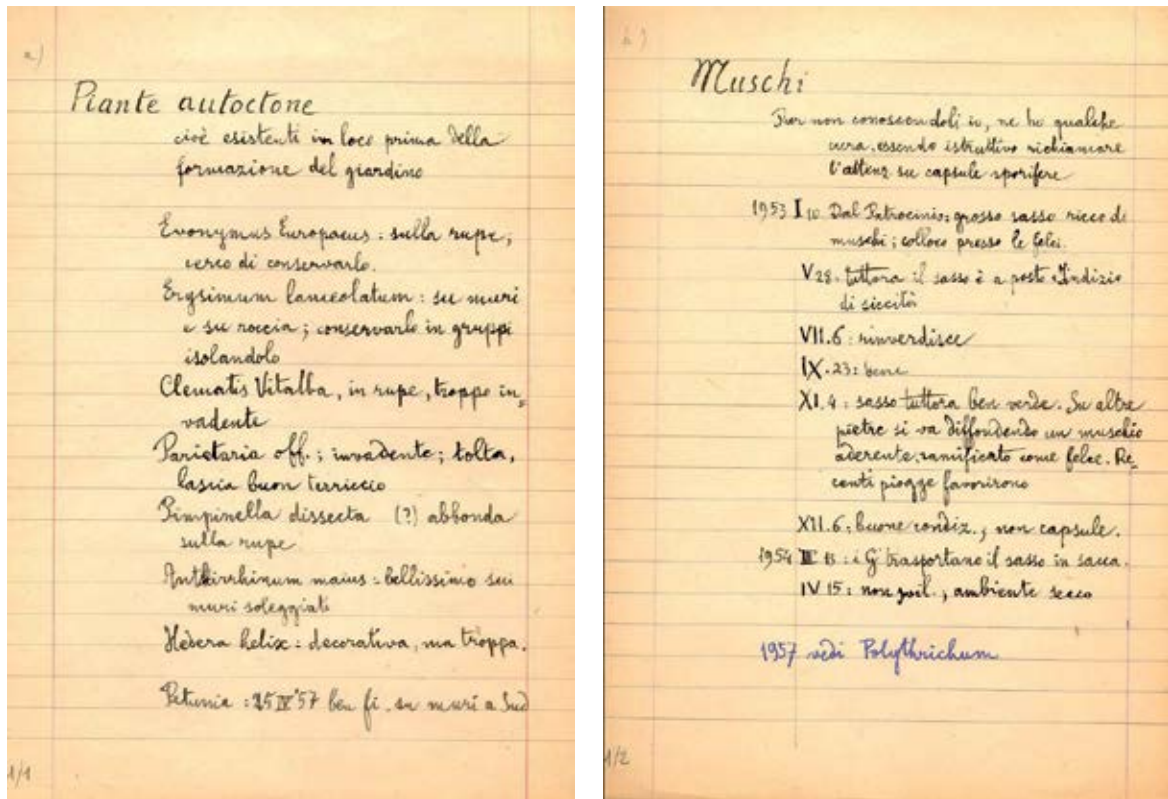 a)
Piante autoctone
cioè esistenti in loco prima della
formazione del giardino
Evonymus Europaeus : sulla rupe,
cerco di conservarlo.
Erysimum lanceolatum : su muri
e su roccia ; conservarlo in gruppi
isolandolo
Clematis Vitalba, in rupe, troppo in=
vadente
Parietaria off. ; invadente ; tolta,
lascia buon terriccio
Pimpinella dissecta (?) abbonda
sulla rupe.
Anthirrhinum maius : bellissimo sui
muri soleggiati
Hedera helix : decorativa, ma troppa.
Petunia : 25 IV '57 ben fi. su muri a Sud
1/1
b)
Muschi
Pur non conoscendoli io, ne ho qualche
cura, essendo istruttivo richiamare
l'attenz su capsule sporifere
1953 I 10 Dal Patrocinio: grosso sasso ricco di
muschi ; colloco presso le felci.
V 28. tuttora il sasso è a posto. Indizio
di siccità
VII.6 : rinverdisce
IX.23 : bene
XI.4 : sasso tuttora ben verde. Su altre
pietre si va diffondendo un muschio
aderente, ramificato come felce. Re=
centi piogge favorirono
XII.6 : buone condiz., non capsule.
1954 : i G. trasportano il sasso in
IV 15 : non, ambiente secco
1957 vedi Polythrichum
1/2